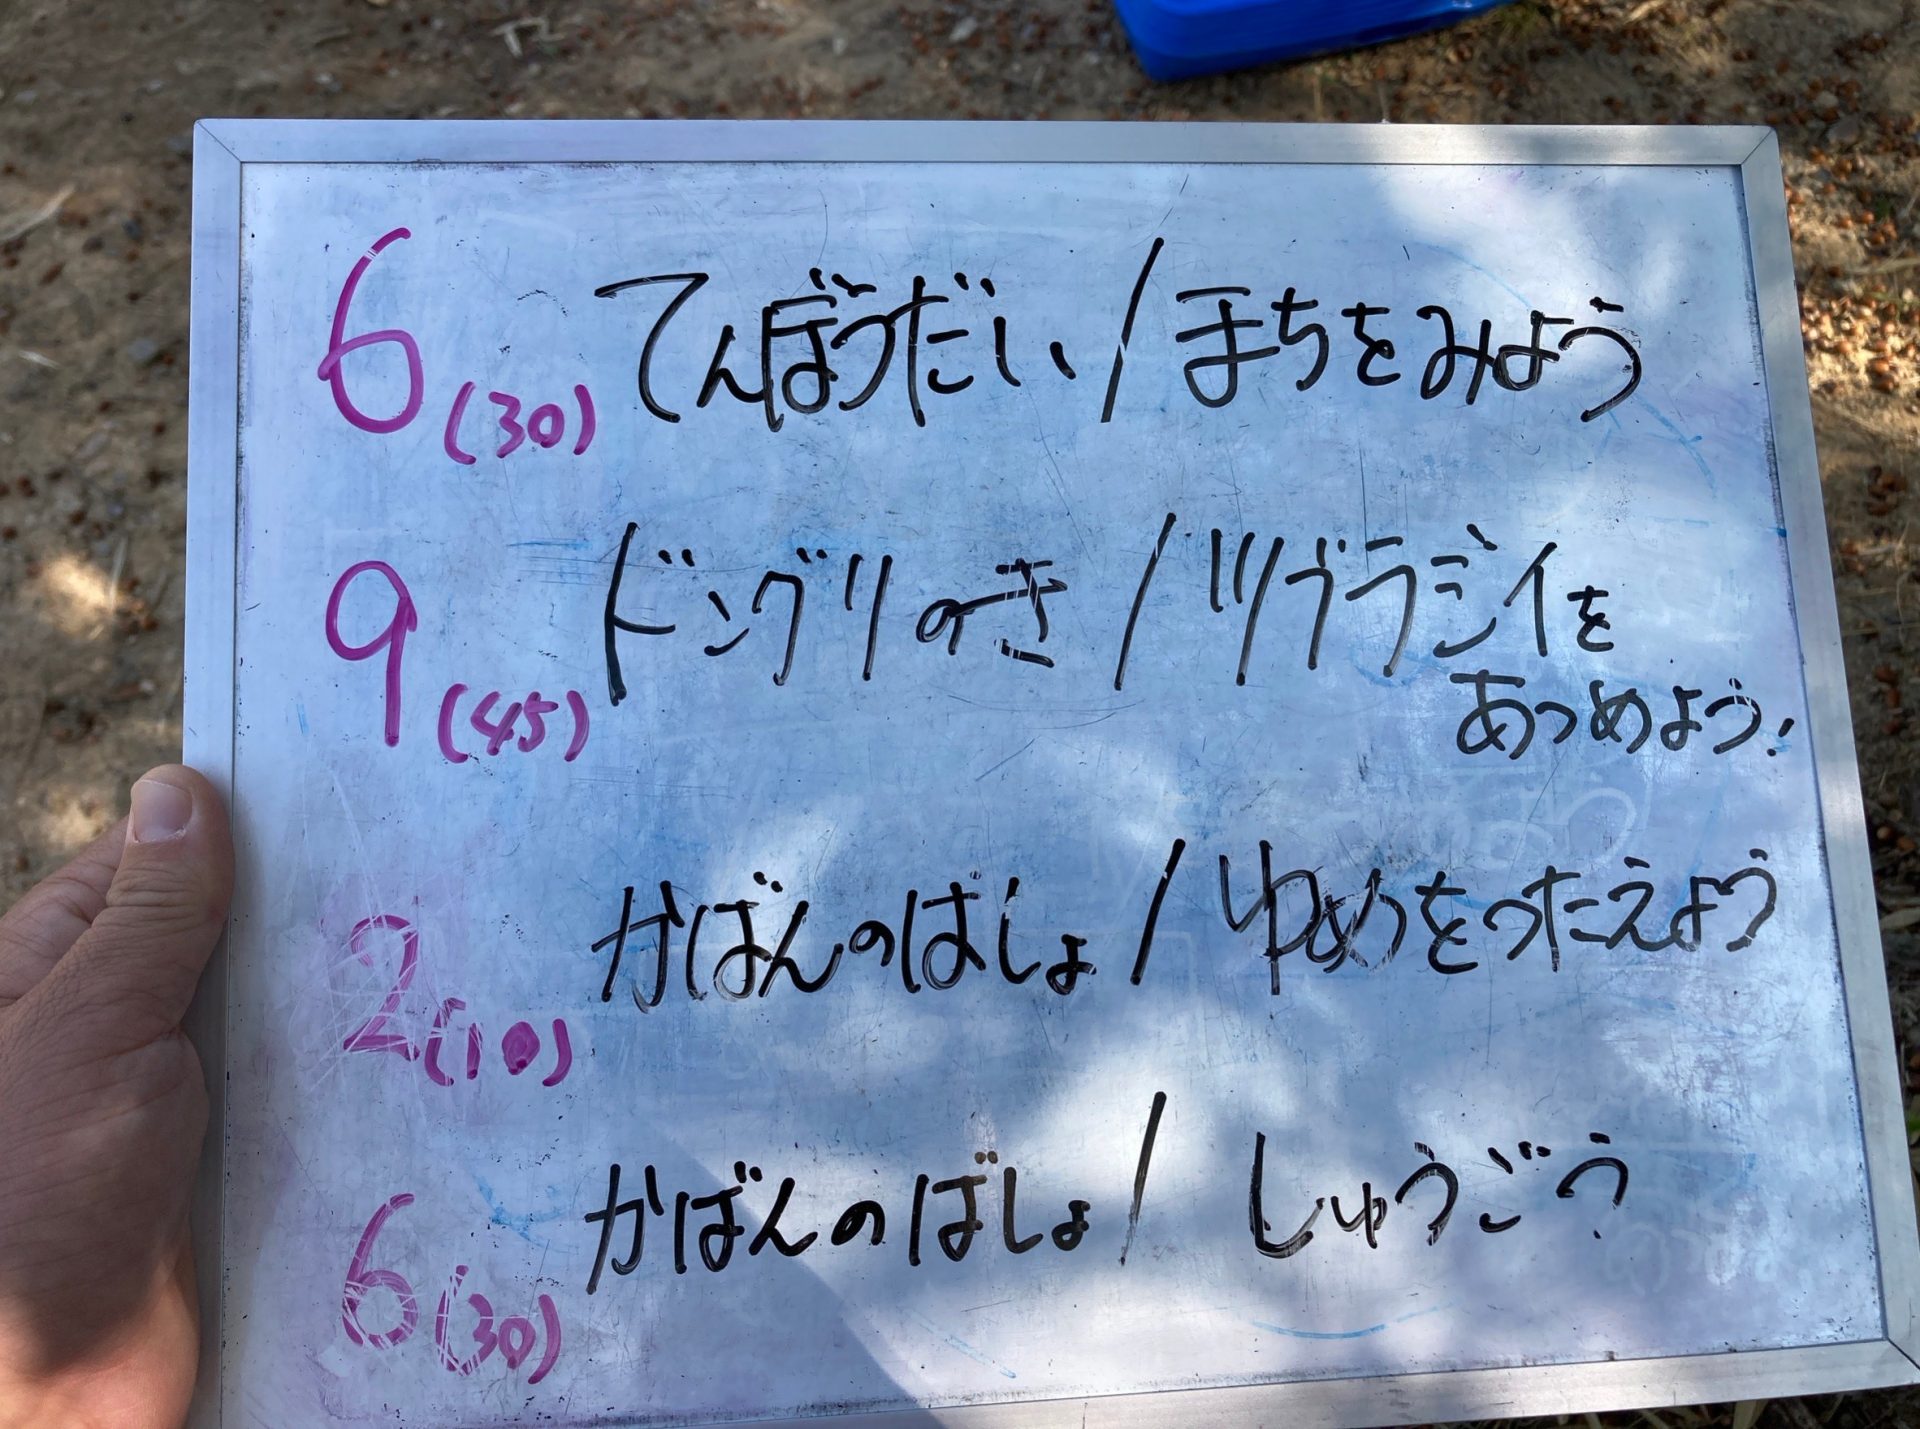 6(30) てんぼうだい/まちをみよう
9(45) ドングリのき/ツブラジイを
あつめよう!
2(10) かばんのばしょ/ゆめをつたえよう
6(30) かばんのばしょ/しゅうごう